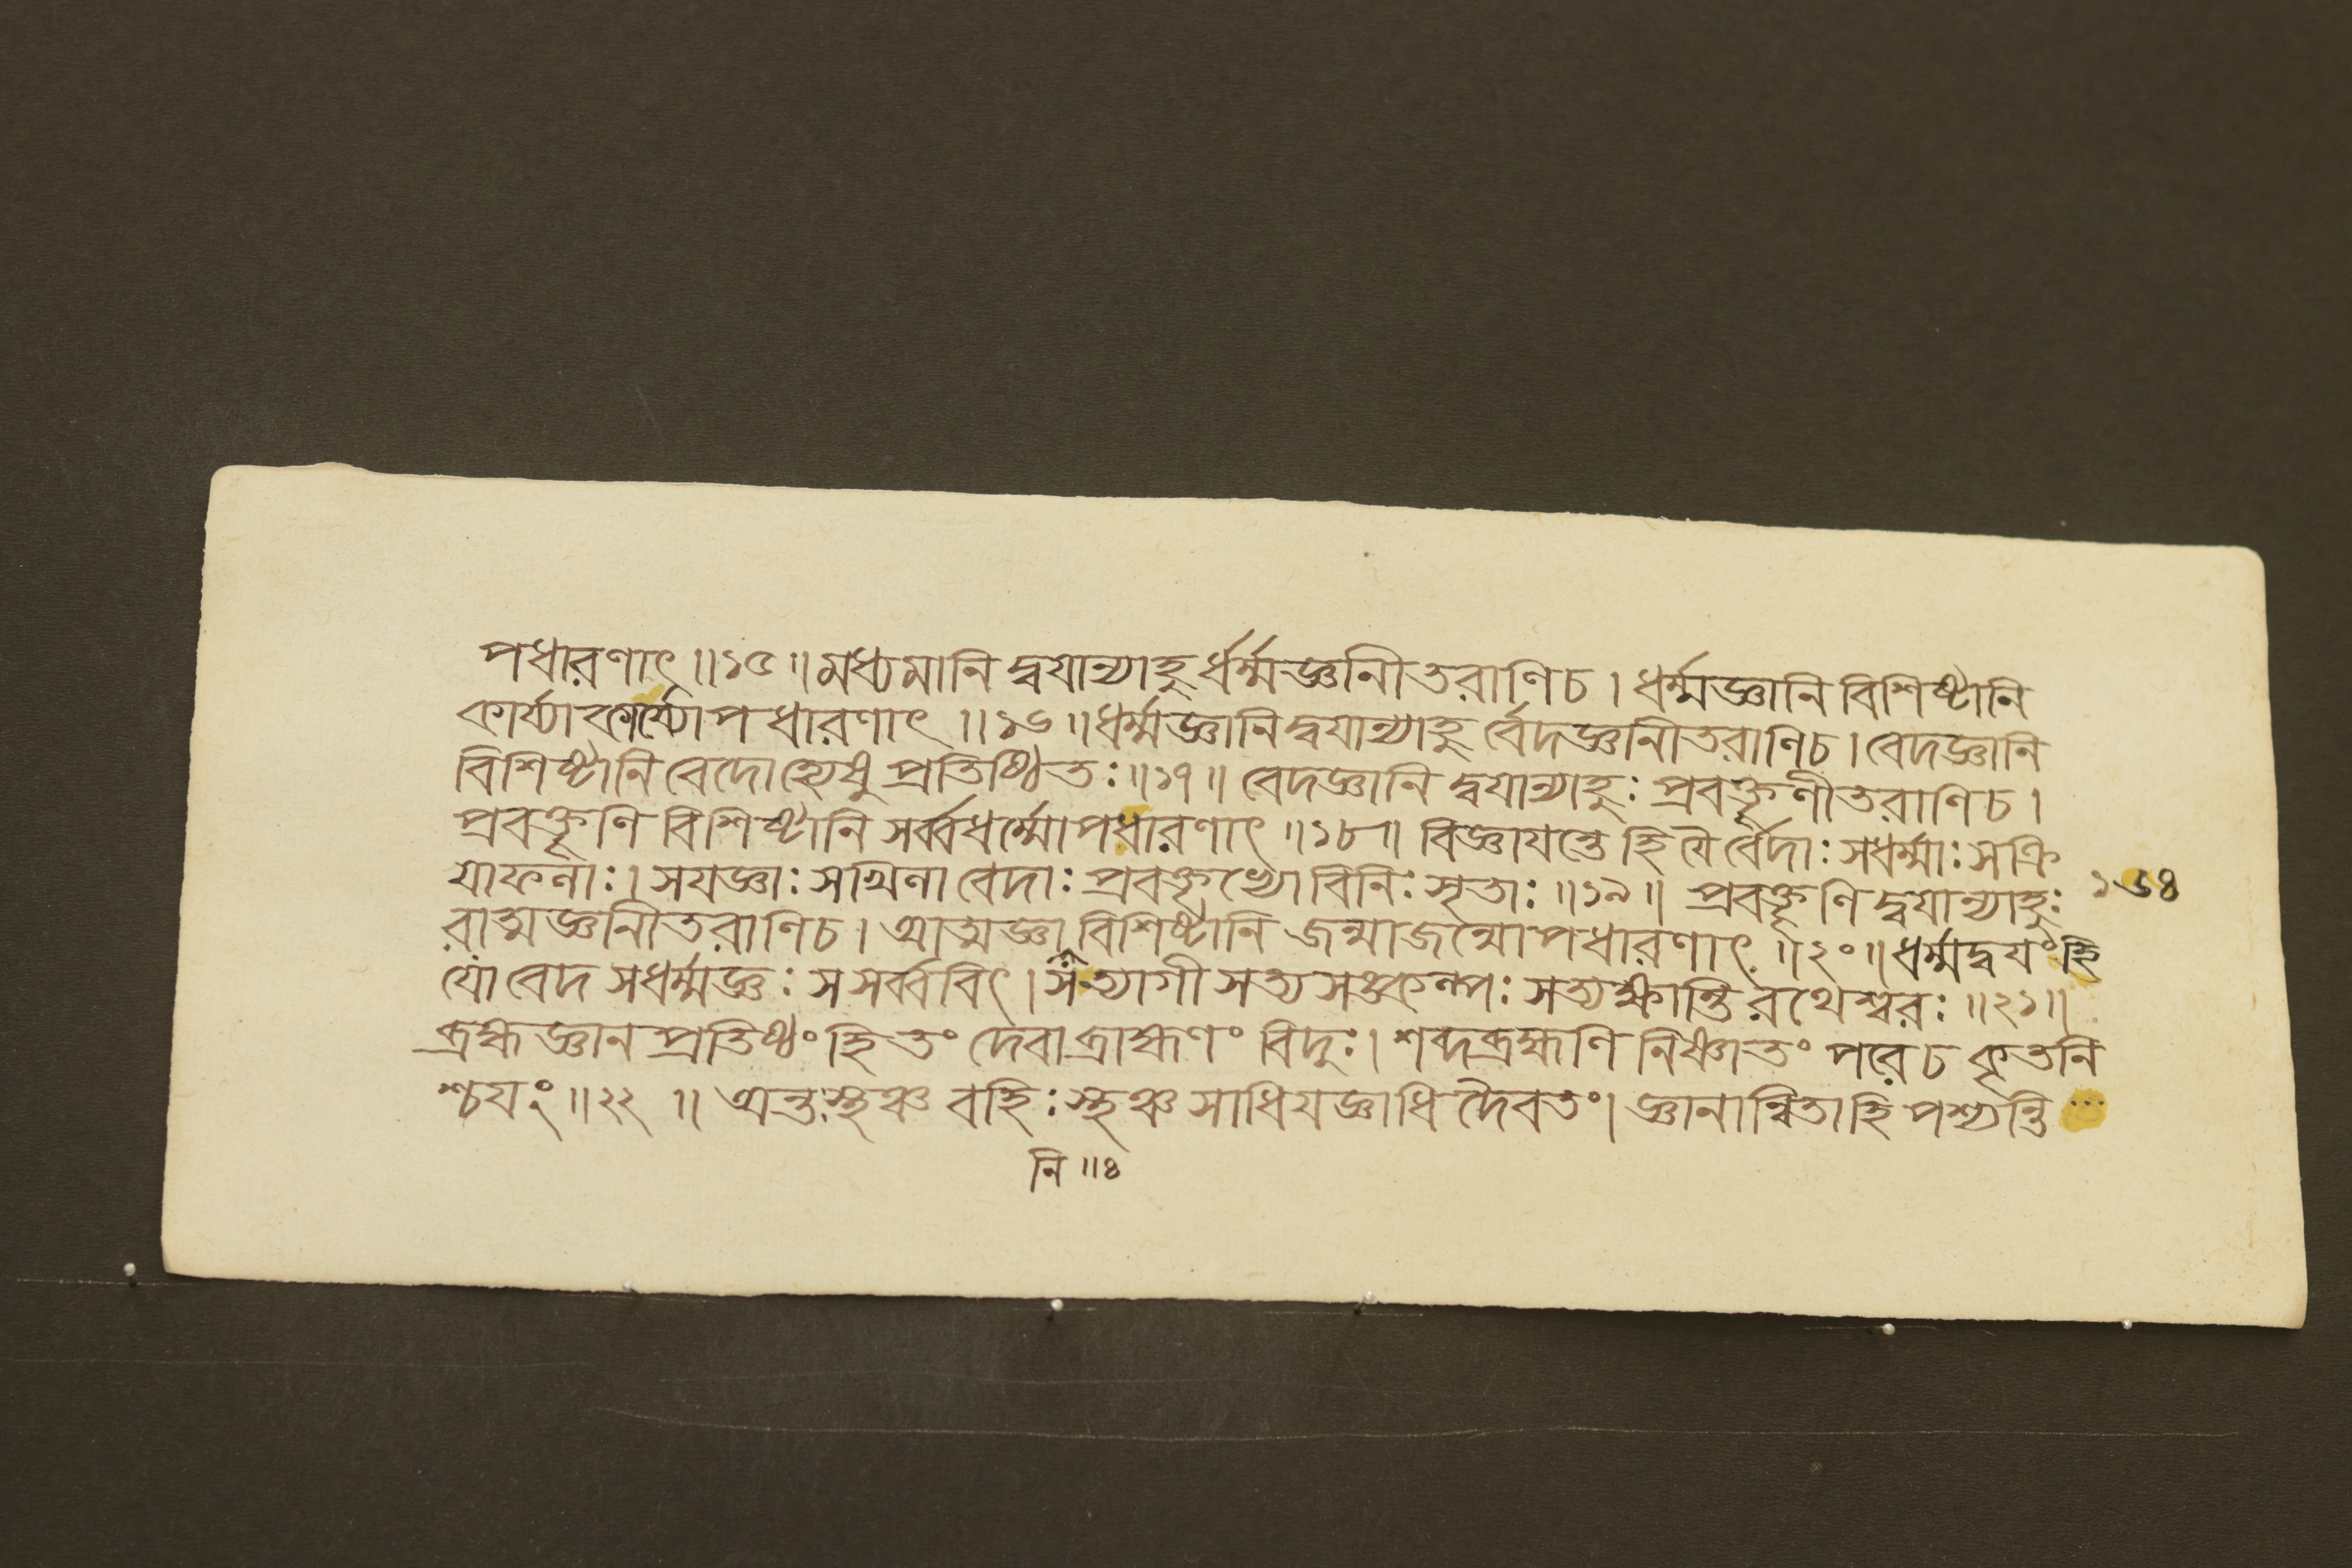 পধারণাৎ ॥১৫॥ মধ্যমানি দ্বয়ান্যাহুর্ধর্ম্মজ্ঞনীতরাণিচ। ধর্ম্মজ্ঞানি বিশিষ্টানি
কার্য্যাকার্য্যোপধারণাৎ ॥১৬॥ ধর্ম্মজ্ঞানি দ্বয়ান্যাহুর্বেদজ্ঞনীতরাণিচ। বেদজ্ঞানি
বিশিষ্টানি বেদোহ্যেষু প্রতিষ্ঠিতঃ ॥১৭॥ বেদজ্ঞানি দ্বয়ান্যাহুঃ প্রবক্তৃণীতরাণিচ।
প্রবক্তৃণি বিশিষ্টানি সর্ব্বধর্ম্মোপধারণাৎ ॥১৮॥ বিজ্ঞাযন্তে হি যৈর্বেদাঃ সধর্ম্মাঃ সক্রি
যাফলাঃ। সযজ্ঞাঃ সখিলা বেদাঃ প্রবক্তৃভ্যো বিনিঃসৃতাঃ ॥১৯॥ প্রবক্তৃণি দ্বয়ান্যাহুঃ
১৬৪
রাত্মজ্ঞনীতরাণিচ। আত্মজ্ঞা বিশিষ্টানি জন্মাজন্মোপধারণাৎ ॥২০॥ ধর্ম্মদ্বযং হি
যো বেদ সধর্ম্মজ্ঞঃ সসর্ব্ববিৎ। স ত্যাগী সত্যসঙ্কল্পঃ সত্যক্ষান্তি রথেশ্বরঃ ॥২১॥
ব্রহ্মজ্ঞানপ্রতিষ্ঠং হি তং দেবা ব্রাহ্মণং বিদুঃ। শব্দব্রহ্মণি নিষ্ণাতং পরে চ কৃতনি
শ্চযং ॥২২॥ অন্তঃস্থঞ্চ বহিঃস্থঞ্চ সাধিযজ্ঞাধিদৈবতং। জ্ঞানান্বিতাহি পশ্যন্তি ...
নি ॥৪